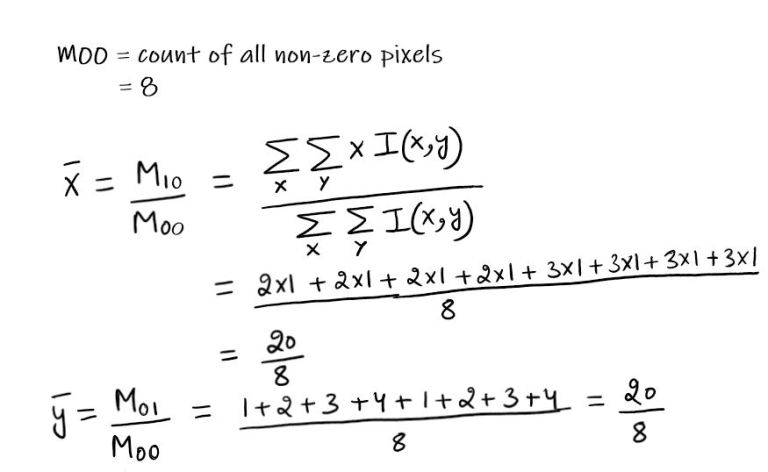 M00 = count of all non-zero pixels
= 8
x̄ = M10 / M00 = ∑x ∑y x I(x,y) / ∑x ∑y I(x,y)
= 2x1 + 2x1 + 2x1 + 2x1 + 3x1 + 3x1 + 3x1 + 3x1 / 8
= 20 / 8
ȳ = M01 / M00 = 1+2+3+4+1+2+3+4 / 8 = 20 / 8